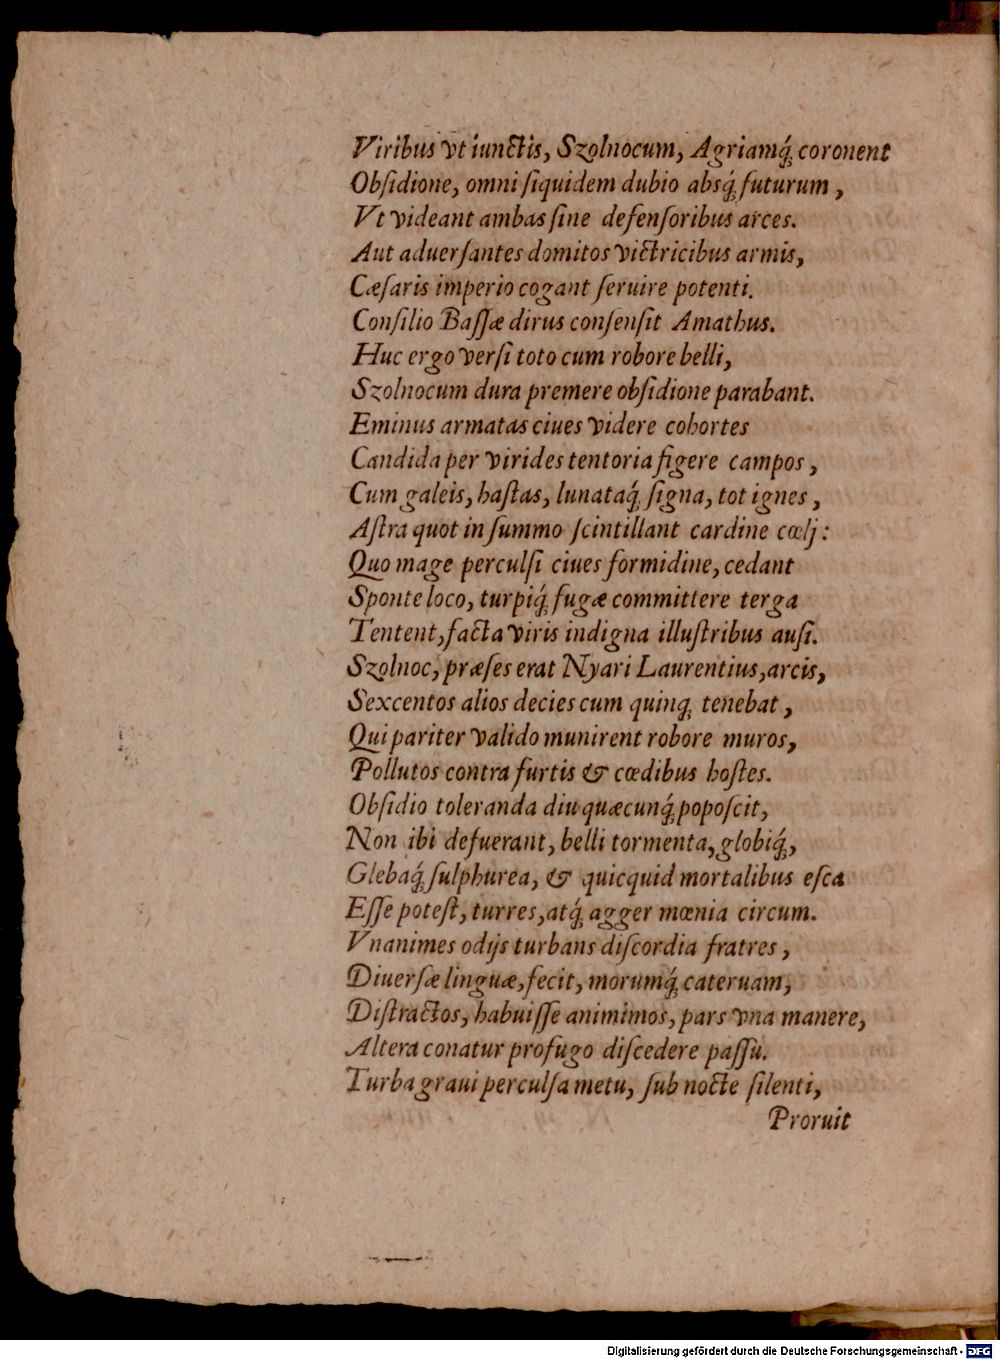 Viribus vt iunctis, Szolnocum, Agriamq́; coronent
Obſidione, omni ſiquidem dubio absq́; futurum,
Vt videant ambas ſine defenſoribus arces.
Aut aduerſantes domitos victricibus armis,
Cæſaris imperio cogant ſeruire potenti.
Conſilio Baſſæ dirus conſenſit Amathus.
Huc ergo verſi toto cum robore belli,
Szolnocum dura premere obſidione parabant.
Eminus armatas ciues videre cohortes
Candida per virides tentoria figere campos,
Cum galeis, haſtas, lunataq́; ſigna, tot ignes,
Aſtra quot in ſummo ſcintillant cardine cœlj:
Quo mage perculſi ciues formidine, cedant
Sponte loco, turpiq́; fugæ committere terga
Tentent, facta viris indigna illuſtribus auſi.
Szolnoc, præſes erat Nyari Laurentius, arcis,
Sexcentos alios decies cum quinq; tenebat,
Qui pariter valido munirent robore muros,
Pollutos contra furtis & cœdibus hoſtes.
Obſidio toleranda diu quæcunq́; popoſcit,
Non ibi defuerant, belli tormenta, globiq́;,
Glebaq́; ſulphurea, & quicquid mortalibus eſca
Eſſe poteſt, turres, atq́; agger mœnia circum.
Vnanimes odijs turbans diſcordia fratres,
Diuerſæ linguæ, fecit, morumq́; cateruam,
Diſtractos, habuiſſe animimos, pars vna manere,
Altera conatur profugo diſcedere paſſu.
Turba graui perculſa metu, ſub nocte ſilenti,
Proruit
Digitalisierung gefördert durch die Deutsche Forschungsgemeinschaft - DFG